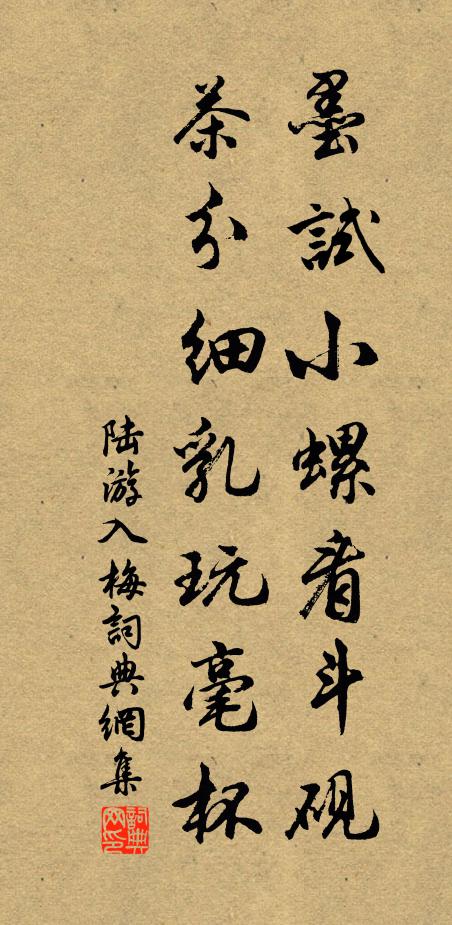 墨試小螺看斗硯
茶分細乳玩毫杯
陸游入梅詞典網集
詞典网印